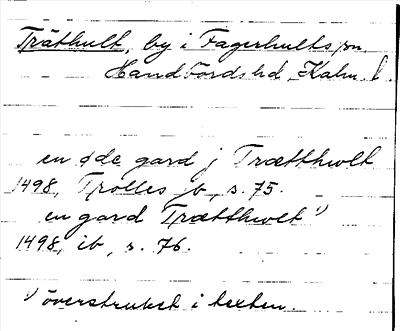 Träthult, by i Fagerhults sn.
Handbords hd, Kalm. l.
en øde gard j Trætthwlt
1498, Trolles jb, s. 75.
en gard Trætthwlt ¹)
1498, ib, s. 76.
¹) överstruket i texten.